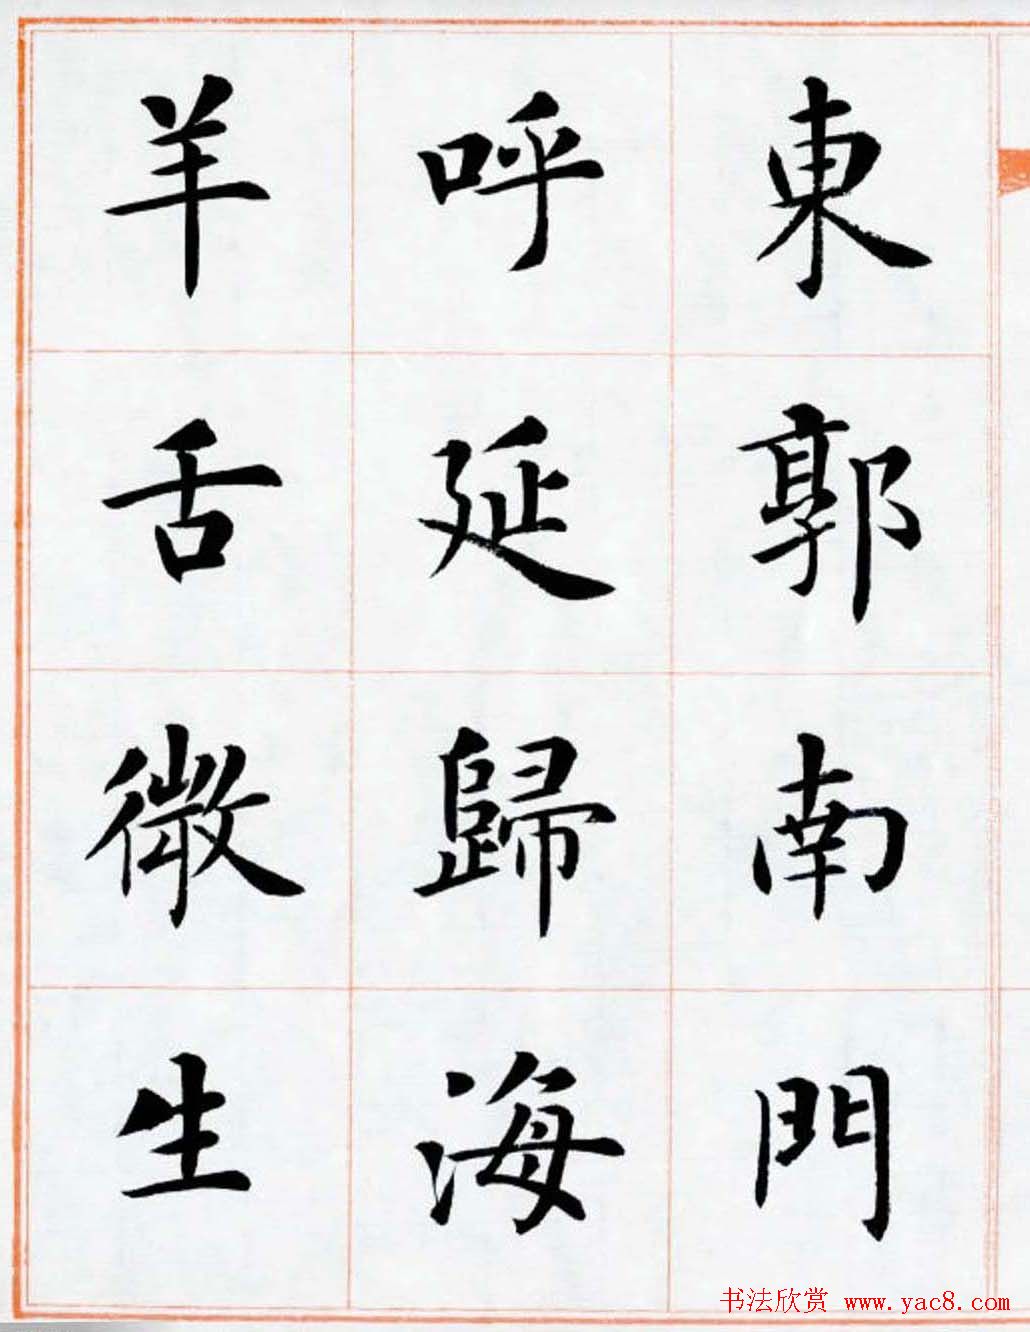 東郭南門
呼延歸海
羊舌微生
书法欣赏 www.yac8.com